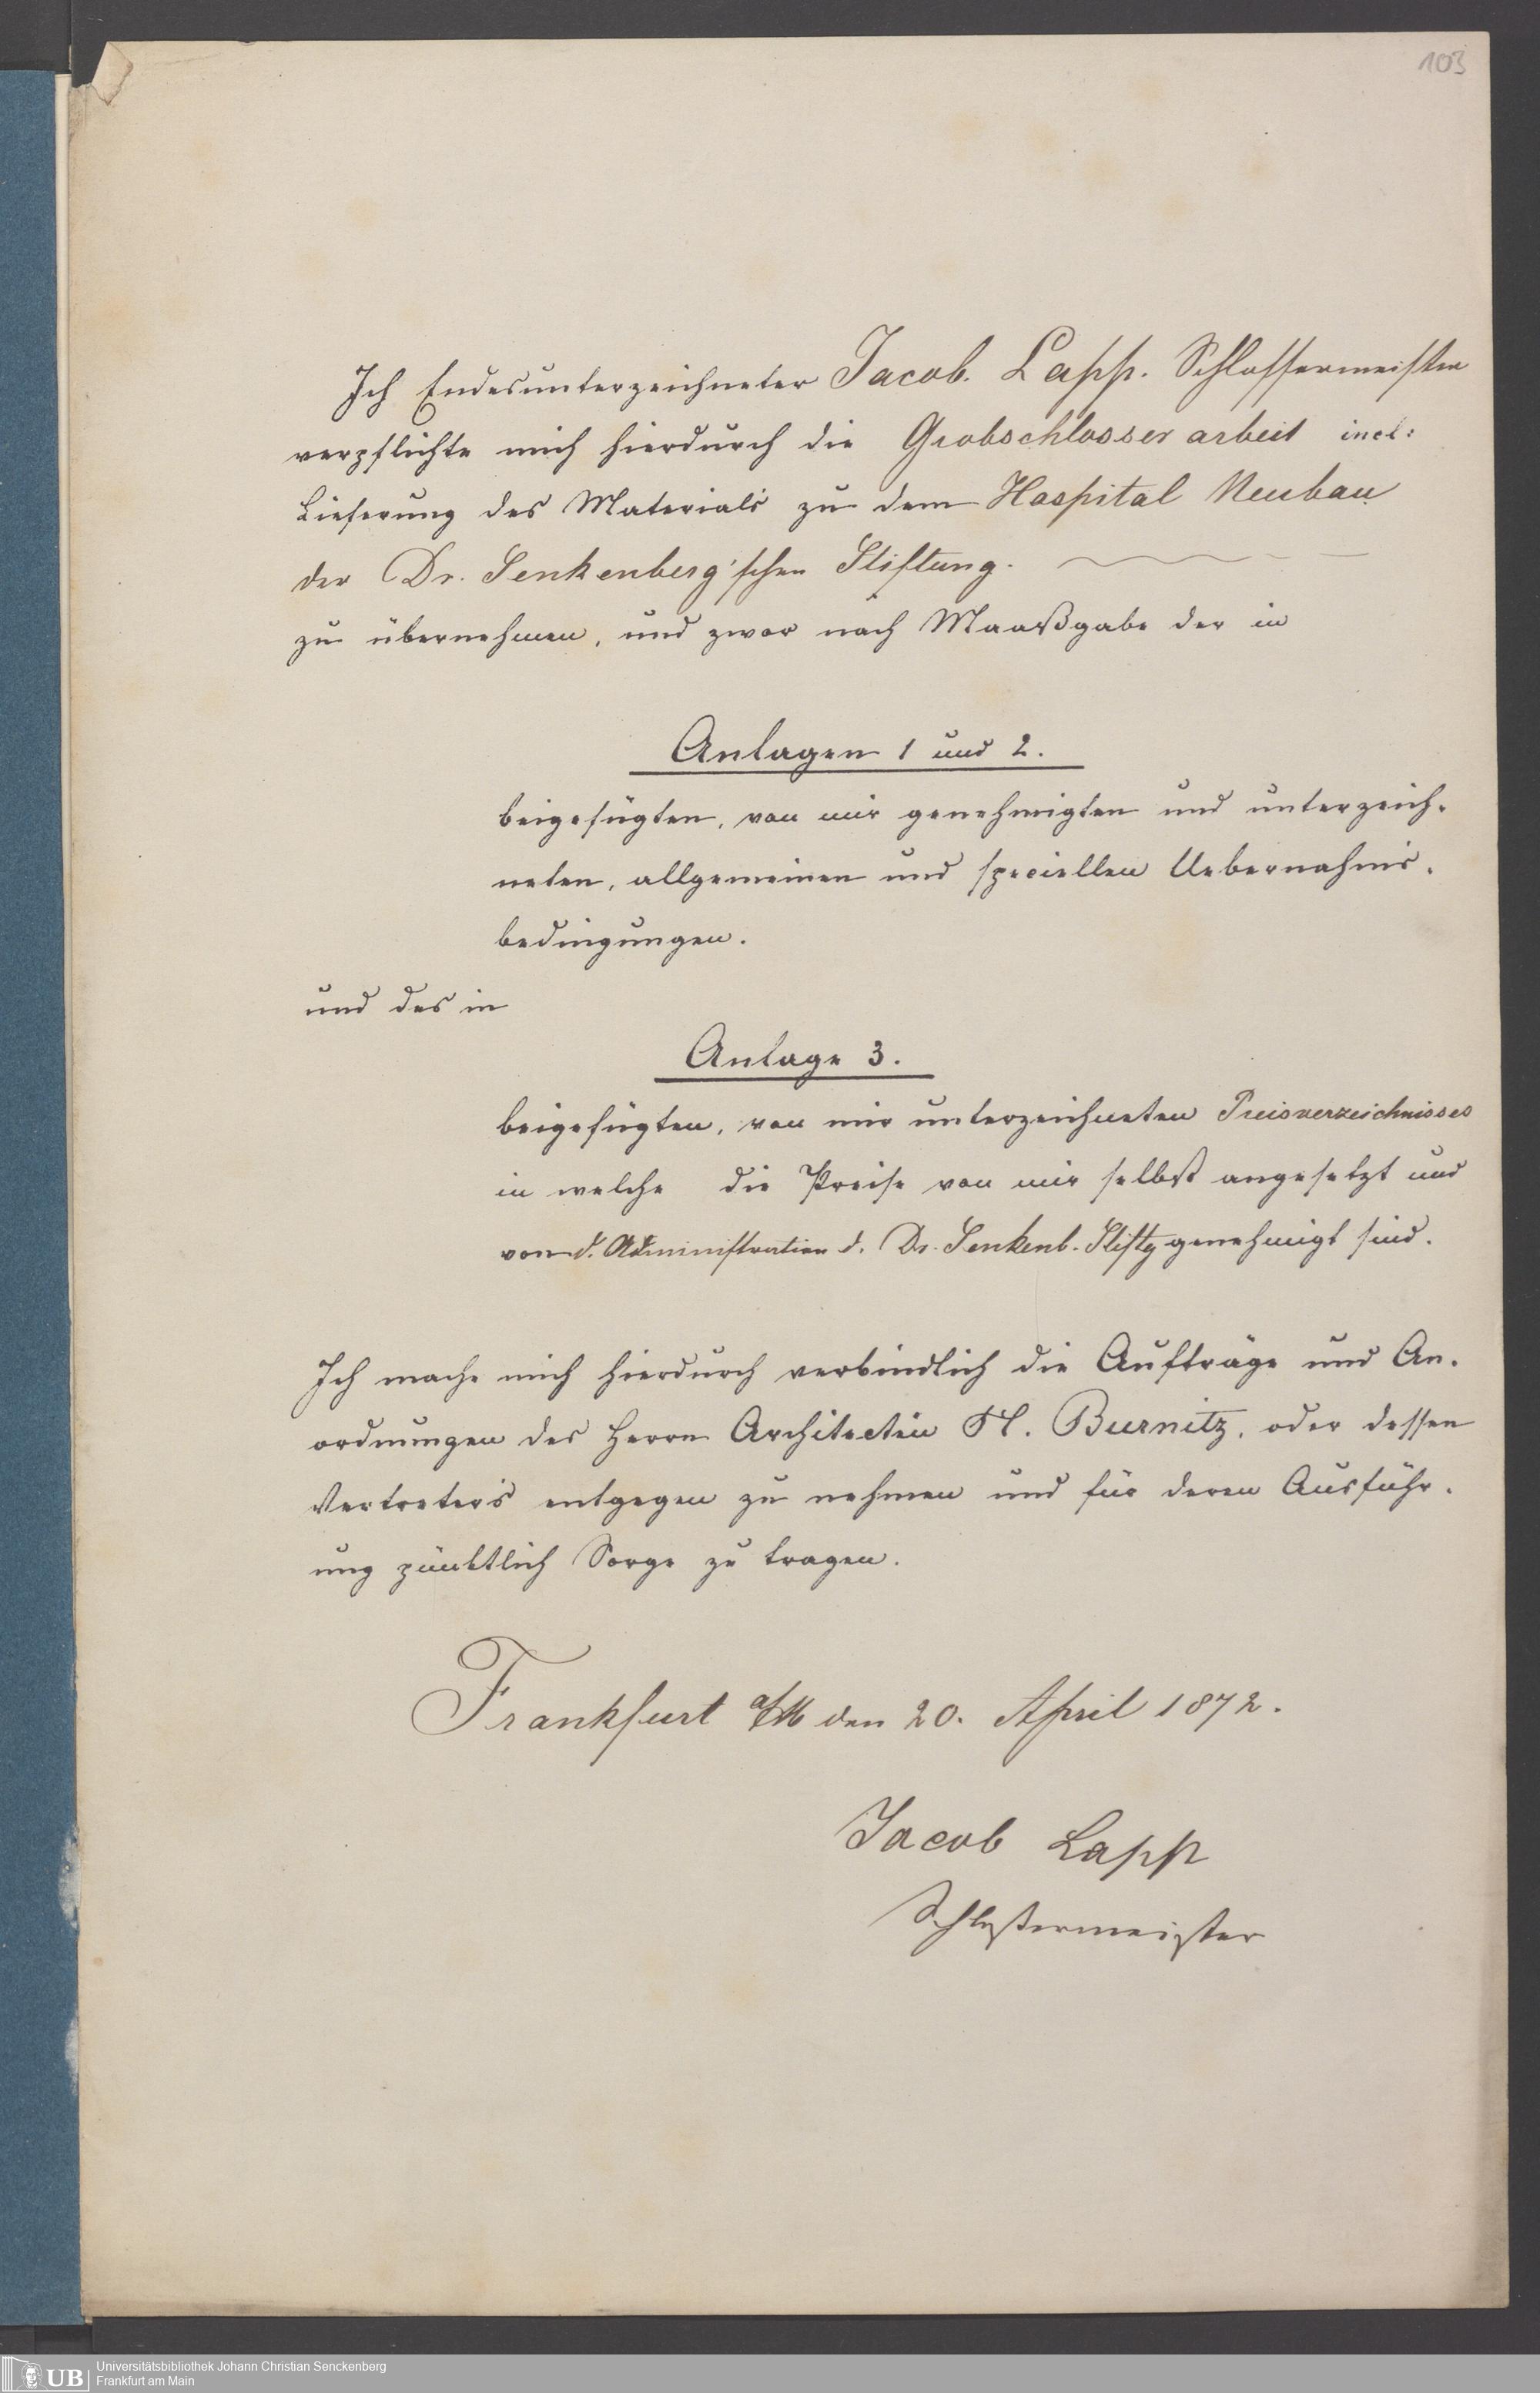 103
Ich Endesunterzeichneter Jacob. Lapp. Schlossermeister
verpflichte mich hierdurch die Grobschlosser arbeit incl:
Lieferung des Materials zu dem Hospital Neubau
der Dr. Senkenberg'schen Stiftung.
zu übernehmen, und zwar nach Maaßgabe der in
Anlagen 1 und 2.
beigefügten, von mir genehmigten und unterzeich-
neten, allgemeinen und speciellen Uebernahms-
bedingungen.
und des in
Anlage 3.
beigefügten, von mir unterzeichneten Preisverzeichnisses
in welche die Preise von mir selbst angesetzt und
von d. Administration d. Dr. Senkenb. Stiftg genehmigt sind.
Ich mache mich hierdurch verbindlich die Aufträge und An-
ordnungen des Herrn Architecten H. Burnitz, oder dessen
Vertreters entgegen zu nehmen und für deren Ausführ-
ung pünktlich Sorge zu tragen.
Frankfurt a/M den 20. April 1872.
Jacob Lapp
Schloßermeister
UB
Universitätsbibliothek Johann Christian Senckenberg
Frankfurt am Main